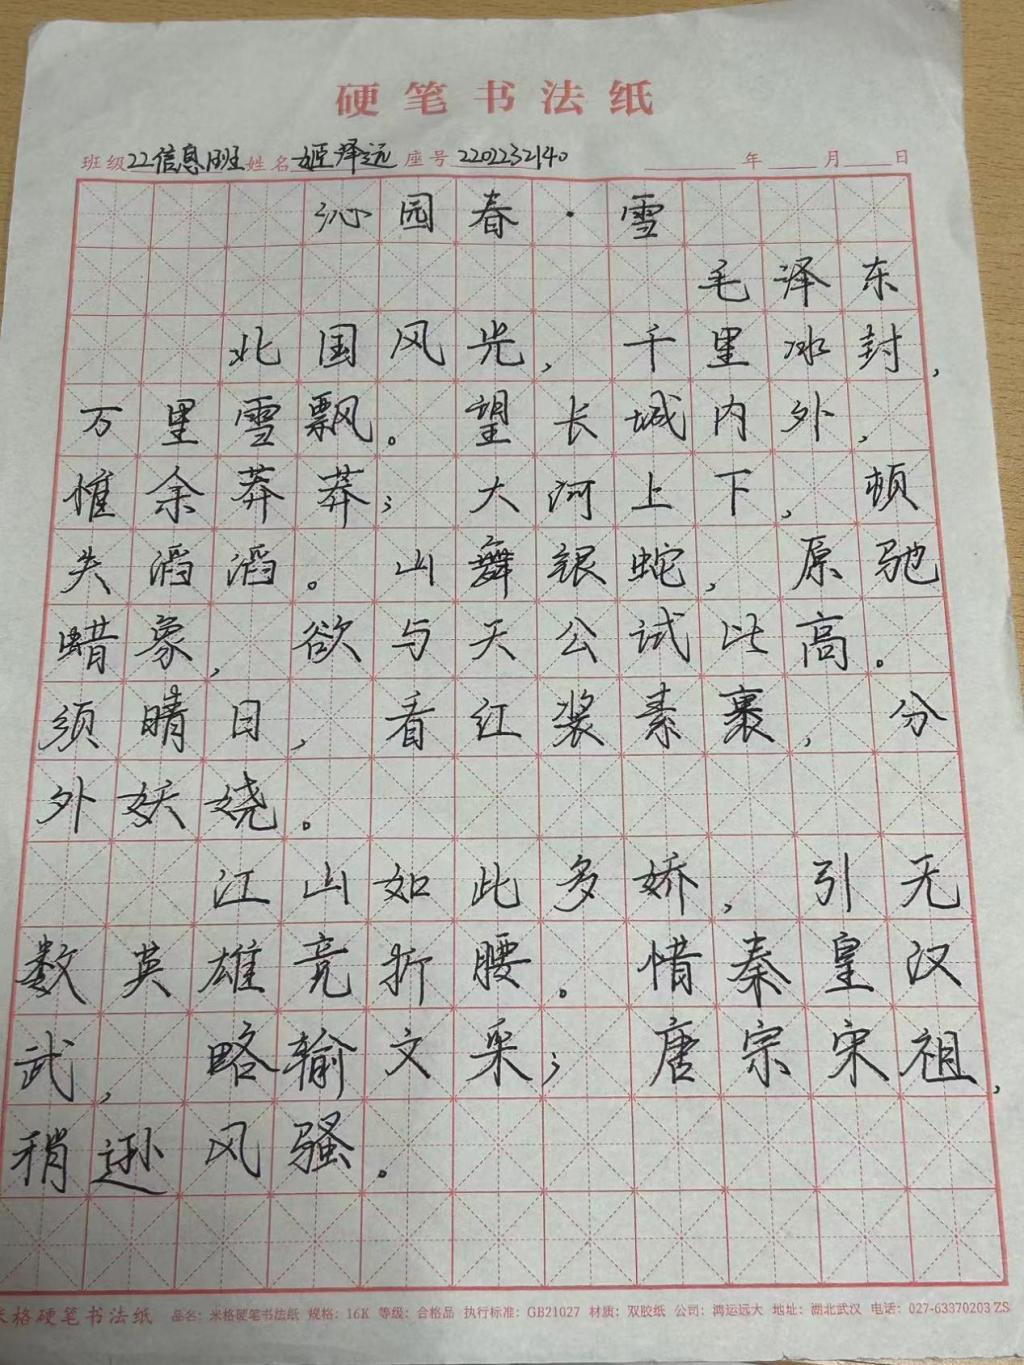 硬笔书法纸
班级22信息1班姓名姬泽远座号2201232140 年 月 日
沁园春·雪
毛泽东
北国风光，千里冰封，
万里雪飘。望长城内外，
惟余莽莽；大河上下，顿
失滔滔。山舞银蛇，原驰
蜡象，欲与天公试比高。
须晴日，看红装素裹，分
外妖娆。
江山如此多娇，引无
数英雄竞折腰。惜秦皇汉
武，略输文采；唐宗宋祖，
稍逊风骚。
米格硬笔书法纸 品名：米格硬笔书法纸 规格：16K 等级：合格品 执行标准：GB21027 材质：双胶纸 公司：鸿运远大 地址：湖北武汉 电话：027-63370203 ZS